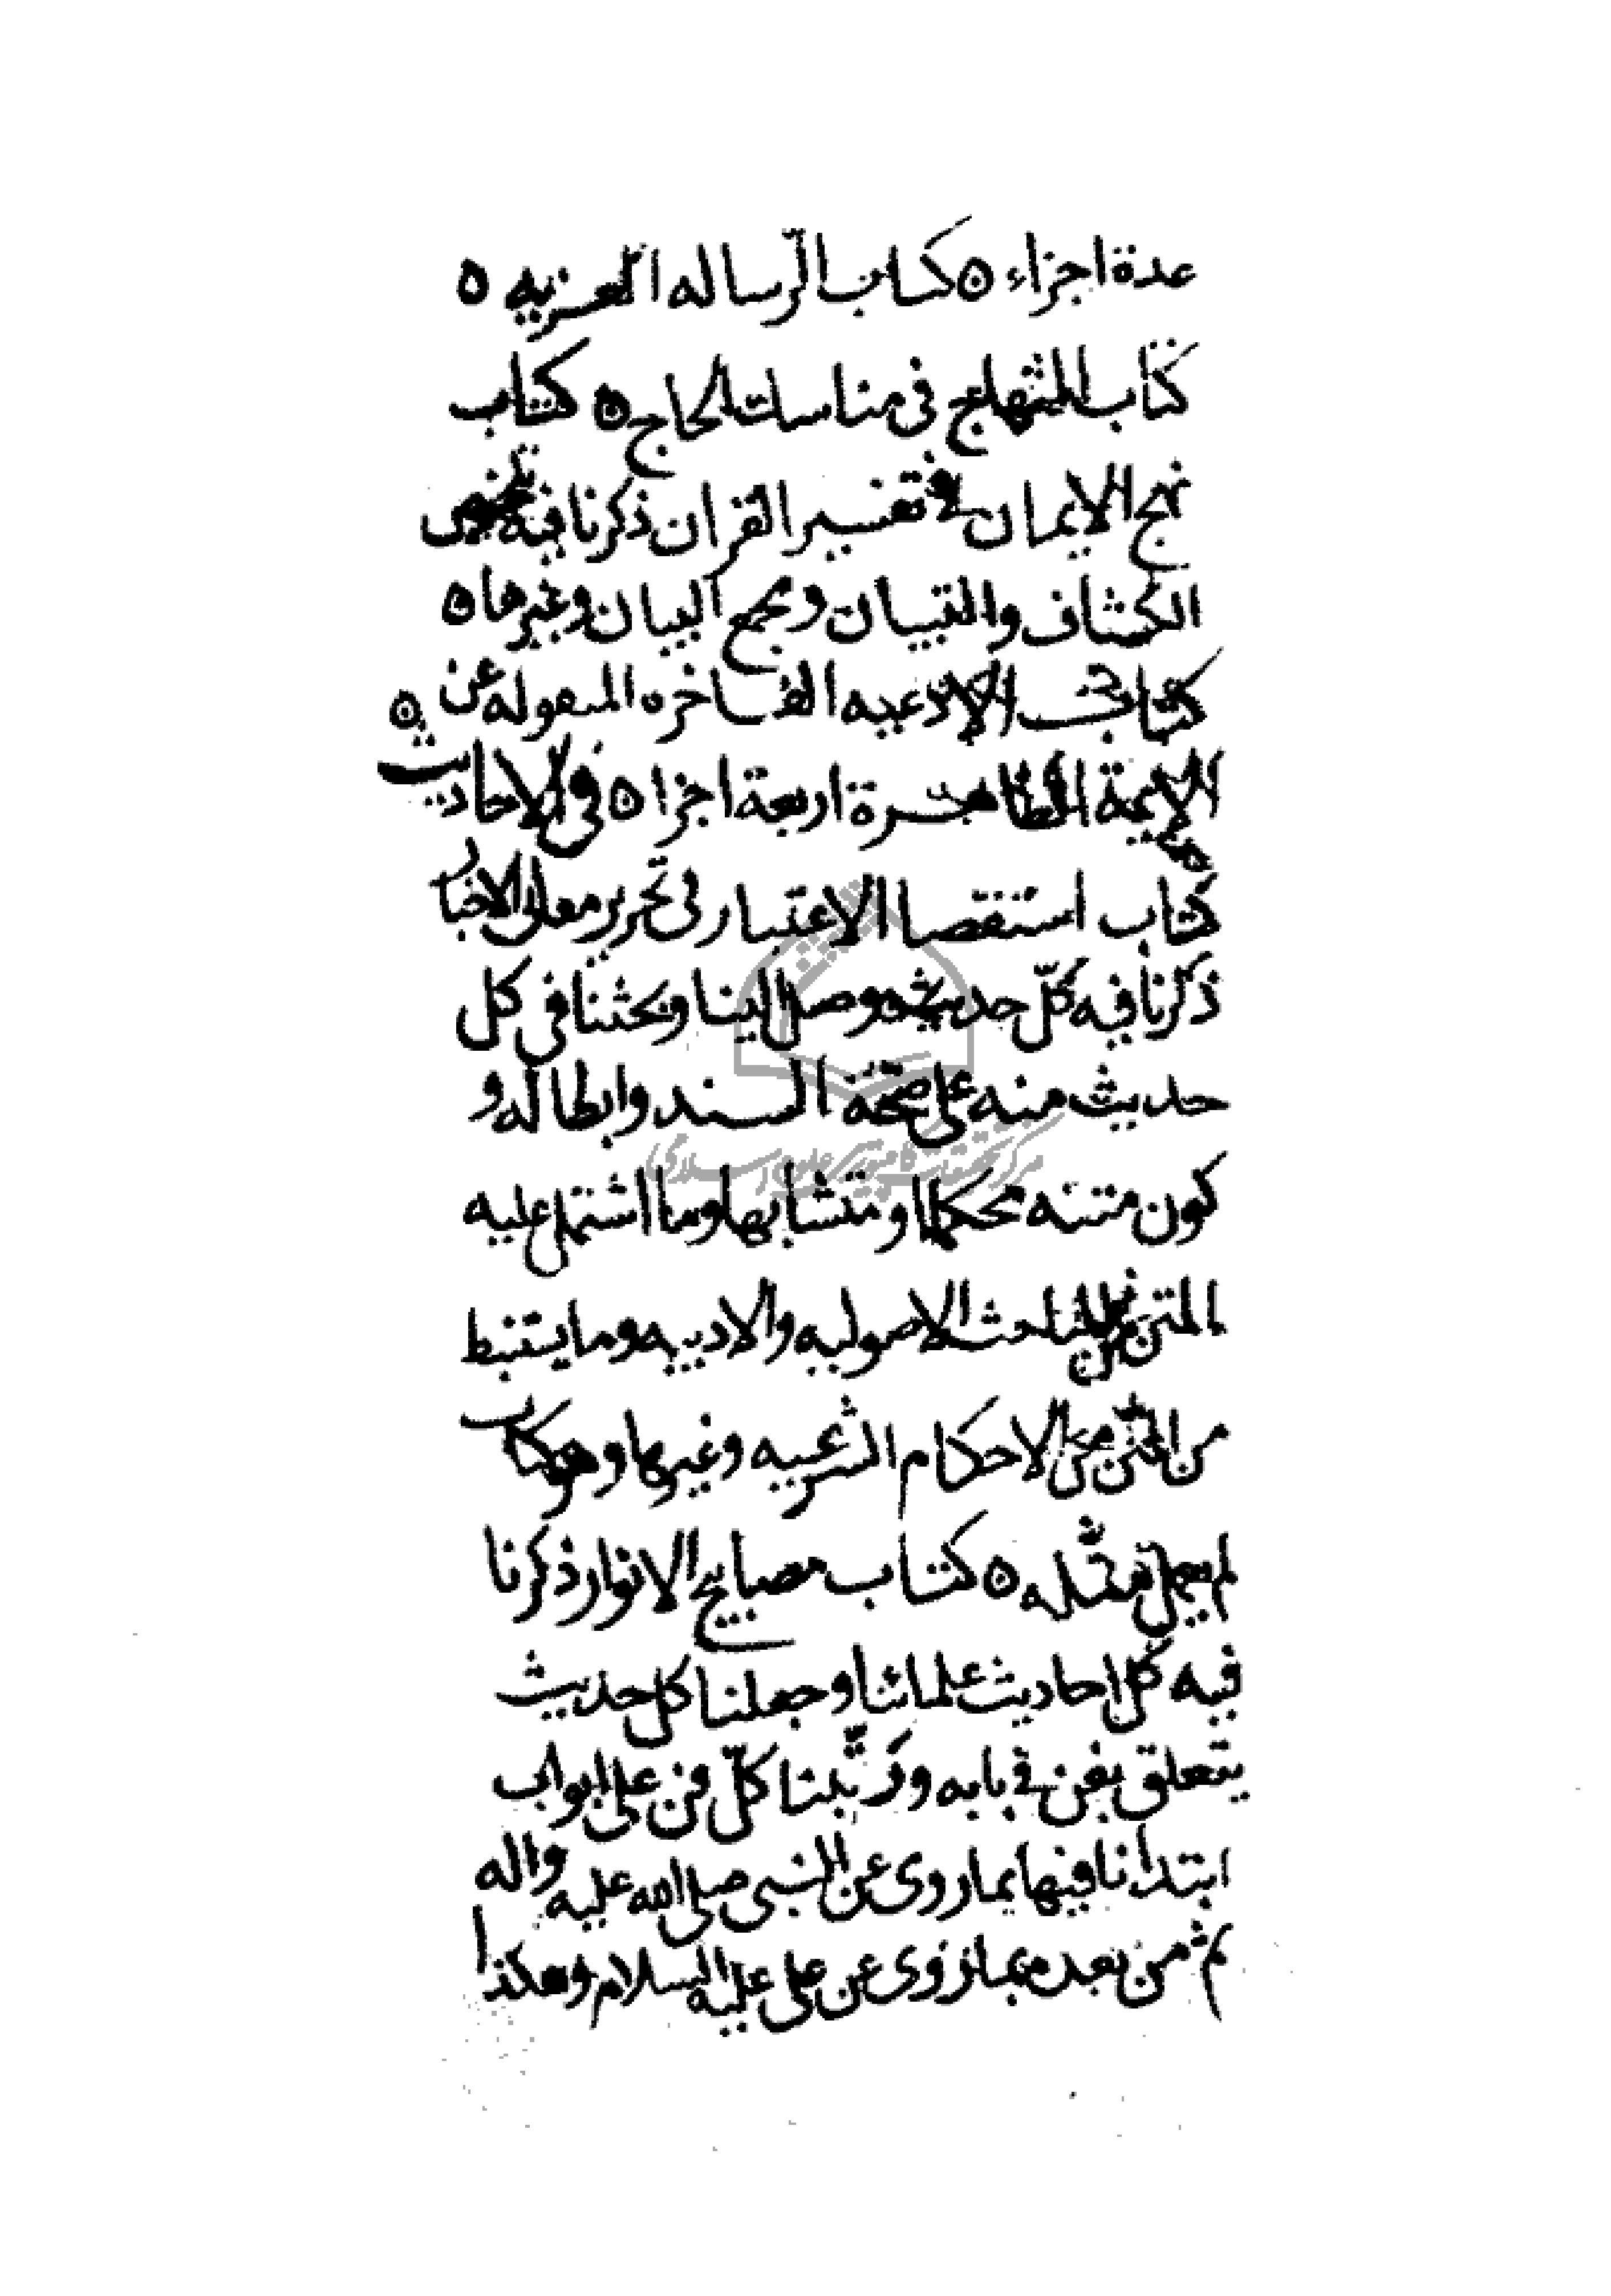 عدة اجزاء ٥ كتاب الرّساله العزيه ٥
كتاب المنهاج في مناسك الحاج ٥ كتاب
نهج الايمان في تفسير القران ذكرنا فيه تلخيص
الكشاف والتبيان ومجمع البيان وغيرها ٥
كتاب الادعيه الفاخره المنقوله عن ٥
الايمة الطاهرة اربعة اجزا ٥ في الاحاديث
كتاب استقصا الاعتبار في تحرير معاني الاخبار
ذكرنا فيه كلّ حديث وصل الينا وبحثنا في كل
حديث منه على صحّة السند وابطاله و
كون متنه محكما او متشابها وما اشتمل عليه
المتن من المباحث الاصوليه والادبيه وما يستنبط
من المتن من الاحكام الشرعيه وغيرها وهو كتاب
لم يعمل مثله ٥ كتاب مصابيح الانوار ذكرنا
فيه كل احاديث علمائنا وجعلنا كل حديث
يتعلق بفن في بابه ورتّبنا كلّ فن على ابواب
ابتدانا فيها بما روى عن النبي صلى الله عليه واله
ثم من بعده بما روى عن على عليه السلام وهكذا
مركز تحقيقات كامپيوتري علوم اسلامي